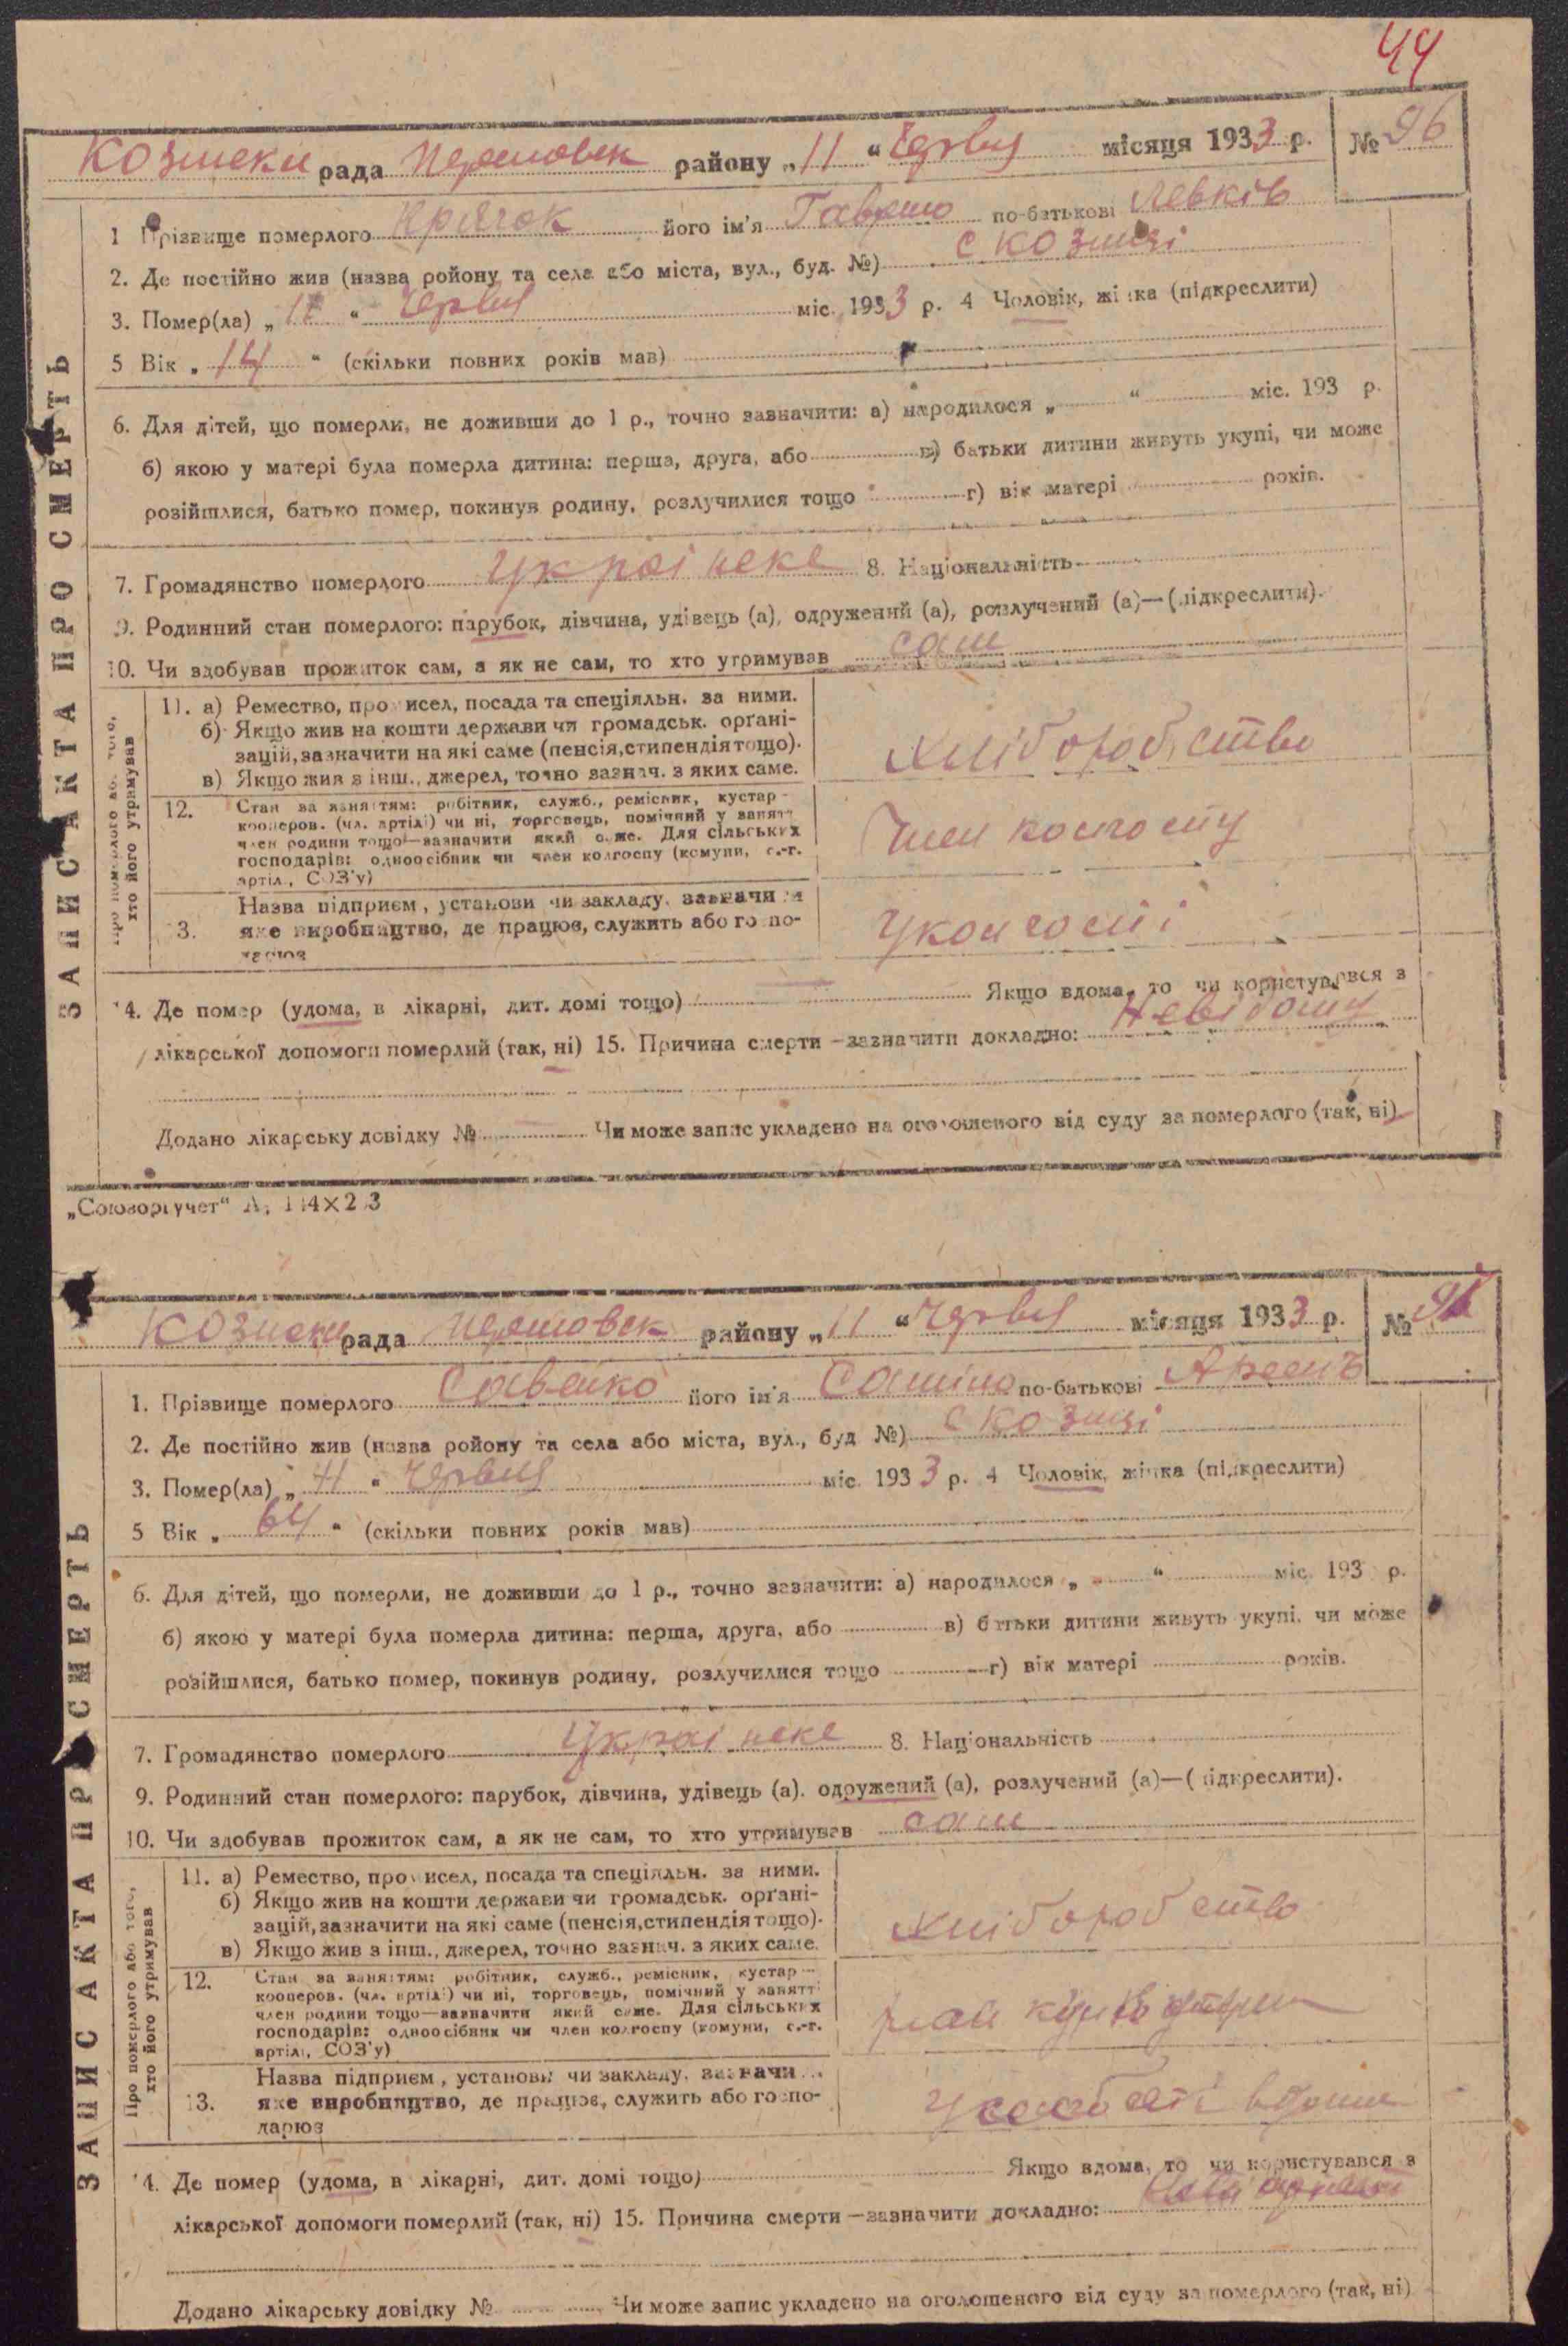 44
Козлеки рада району „11“ Червня місяця 1933 р. № 96
1 Прізвище померлого його ім'я Гаврило по-батькові Левків
2. Де постійно жив (назва ройону та села або міста, вул., буд. №) с
3. Помер(ла) „ “ Червня міс. 1933 р. 4 Чоловік, жінка (підкреслити)
5 Вік „14“ (скільки повних років мав)
6. Для дітей, що померли, не доживши до 1 р., точно зазначити: а) народилося „ “ міс. 193 р.
б) якою у матері була померла дитина: перша, друга, або в) батьки дитини живуть укупі, чи може
розійшлися, батько помер, покинув родину, розлучилися тощо г) вік матері років.
7. Громадянство померлого Украінске 8. Національність
9. Родинний стан померлого: парубок, дівчина, удівець (а), одружений (а), розлучений (а)—(підкреслити).
10. Чи здобував прожиток сам, а як не сам, то хто утримував сам
Про померлого або того, хто його утримував
11. а) Ремество, промисел, посада та спеціяльн. за ними.
б) Якщо жив на кошти держави чи громадськ. орґані-
зацій, зазначити на які саме (пенсія, стипендія тощо).
в) Якщо жив з інш., джерел, точно зазнач. з яких саме.
Хліборобство
12. Стан за заняттям: робітник, служб., ремісник, кустар-
кооперов. (чл. артілі) чи ні, торговець, помічний у занятт
член родини тощо—зазначити який саме. Для сільських
господарів: одноосібник чи член колгоспу (комуни, с.-г.
артіл., СОЗ'у)
Член колгоспу
13. Назва підприєм, установи чи закладу, зазначи
яке виробництво, де працює, служить або госпо-
дарює
У колгоспі
14. Де помер (удома, в лікарні, дит. домі тощо) Якщо вдома, то чи користувався з
лікарської допомоги померлий (так, ні) 15. Причина смерти—зазначити докладно: Невідомо
Додано лікарську довідку № Чи може запис укладено на оголошеного від суду за померлого (так, ні)
„Союзоргучет“
ЗАПИС АКТА ПРО СМЕРТЬ
рада району „11“ Червня місяця 1933 р. №
1. Прізвище померлого Савенко його ім'я по-батькові Арсенъ
2. Де постійно жив (назва ройону та села або міста, вул., буд №) с
3. Помер(ла) „11“ Червня міс. 1933 р. 4 Чоловік, жінка (підкреслити)
5 Вік „64“ (скільки повних років мав)
6. Для дітей, що померли, не доживши до 1 р., точно зазначити: а) народилося „ “ міс. 193 р.
б) якою у матері була померла дитина: перша, друга, або в) батьки дитини живуть укупі, чи може
розійшлися, батько помер, покинув родину, розлучилися тощо г) вік матері років.
7. Громадянство померлого Украінске 8. Національність
9. Родинний стан померлого: парубок, дівчина, удівець (а). одружений (а), розлучений (а)—(підкреслити).
10. Чи здобував прожиток сам, а як не сам, то хто утримував сам
Про померлого або того, хто його утримував
11. а) Ремество, промисел, посада та спеціяльн. за ними.
б) Якщо жив на кошти держави чи громадськ. орґані-
зацій, зазначити на які саме (пенсія, стипендія тощо).
в) Якщо жив з інш., джерел, точно зазнач. з яких саме.
Хліборобство
12. Стан за заняттям: робітник, служб., ремісник, кустар—
кооперов. (чл. артілі) чи ні, торговець, помічний у занятт
член родини тощо—зазначити який саме. Для сільських
господарів: одноосібник чи член колгоспу (комуни, с.-г.
артілі, СОЗ'у)
13. Назва підприєм, установи чи закладу, зазначи
яке виробництво, де працює, служить або госпо-
дарює
14. Де помер (удома, в лікарні, дит. домі тощо) Якщо вдома, то чи користувався з
лікарської допомоги померлий (так, ні) 15. Причина смерти—зазначити докладно:
Додано лікарську довідку № Чи може запис укладено на оголошеного від суду за померлого (так, ні)
ЗАПИС АКТА ПРО СМЕРТЬ